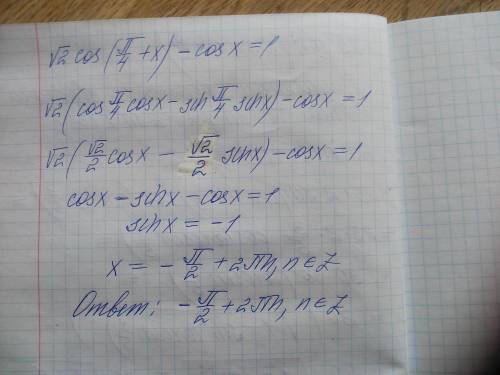 √2 cos(π/4 + x) - cos x = 1
√2(cos π/4 cos x - sin π/4 sin x) - cos x = 1
√2(√2/2 cos x - √2/2 sin x) - cos x = 1
cos x - sin x - cos x = 1
sin x = -1
x = -π/2 + 2πn, n ∈ Z
Ответ: -π/2 + 2πn, n ∈ Z